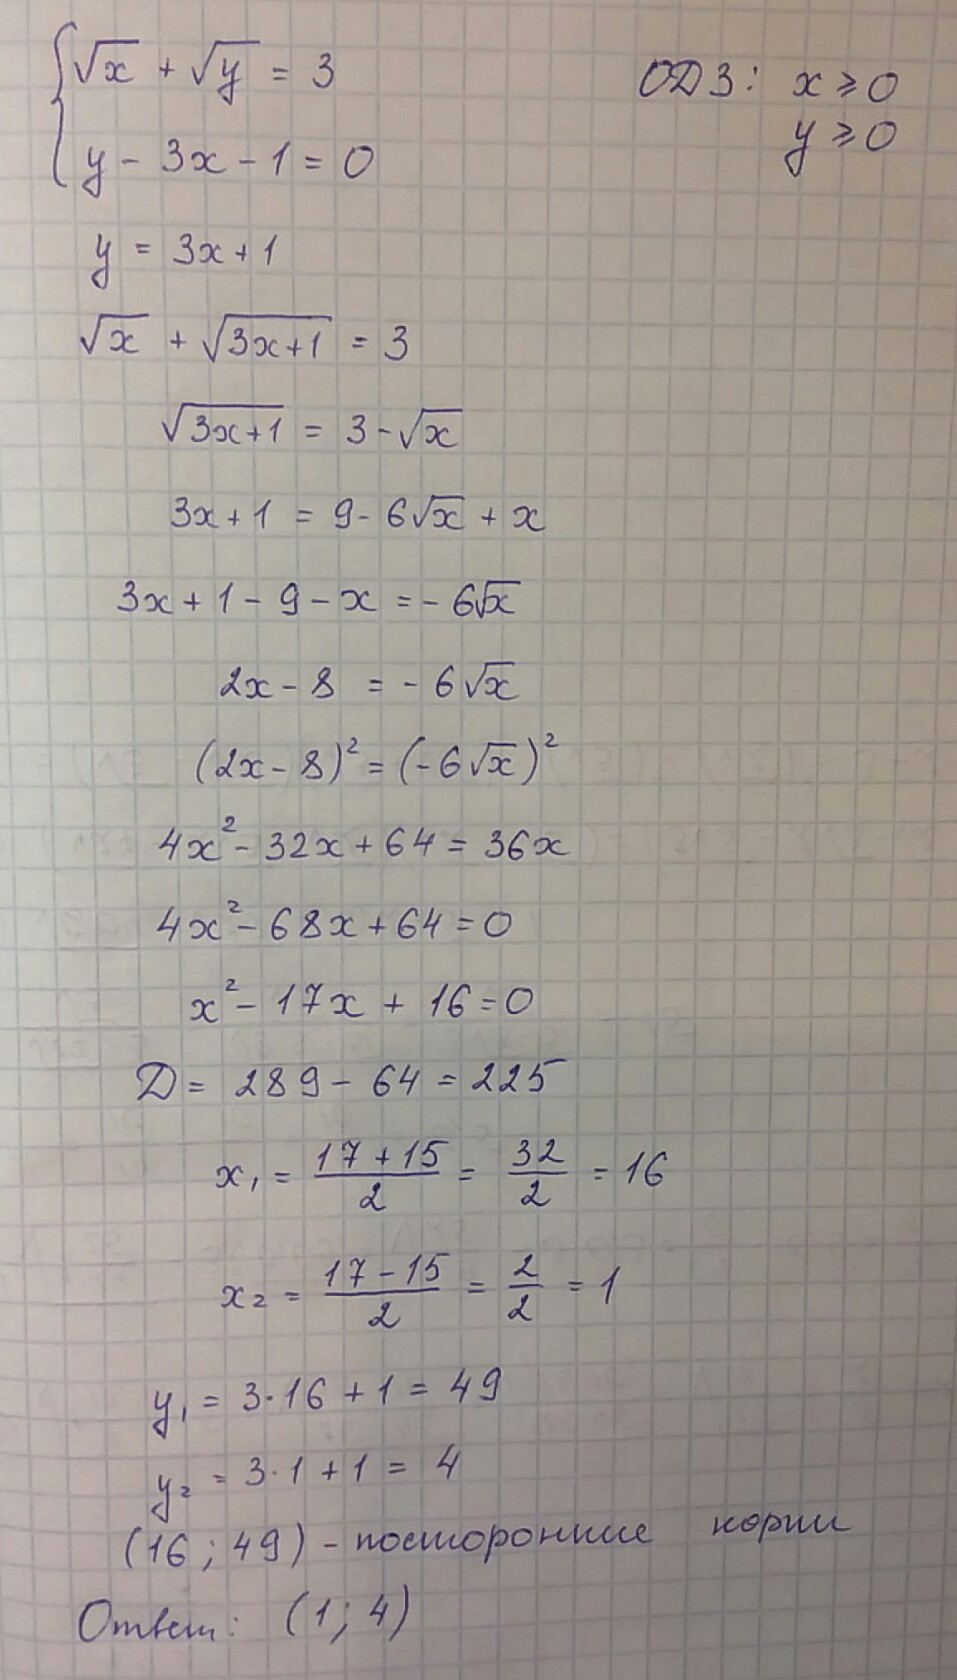 √x + √y = 3
ОДЗ: x ≥ 0
y - 3x - 1 = 0
y ≥ 0
y = 3x + 1
√x + √(3x+1) = 3
√(3x+1) = 3 - √x
3x + 1 = 9 - 6√x + x
3x + 1 - 9 - x = - 6√x
2x - 8 = - 6√x
(2x - 8)² = (-6√x)²
4x² - 32x + 64 = 36x
4x² - 68x + 64 = 0
x² - 17x + 16 = 0
D = 289 - 64 = 225
x₁ = (17 + 15)/2 = 32/2 = 16
x₂ = (17 - 15)/2 = 2/2 = 1
y₁ = 3·16 + 1 = 49
y₂ = 3·1 + 1 = 4
(16; 49) - посторонние корни
Ответ: (1; 4)